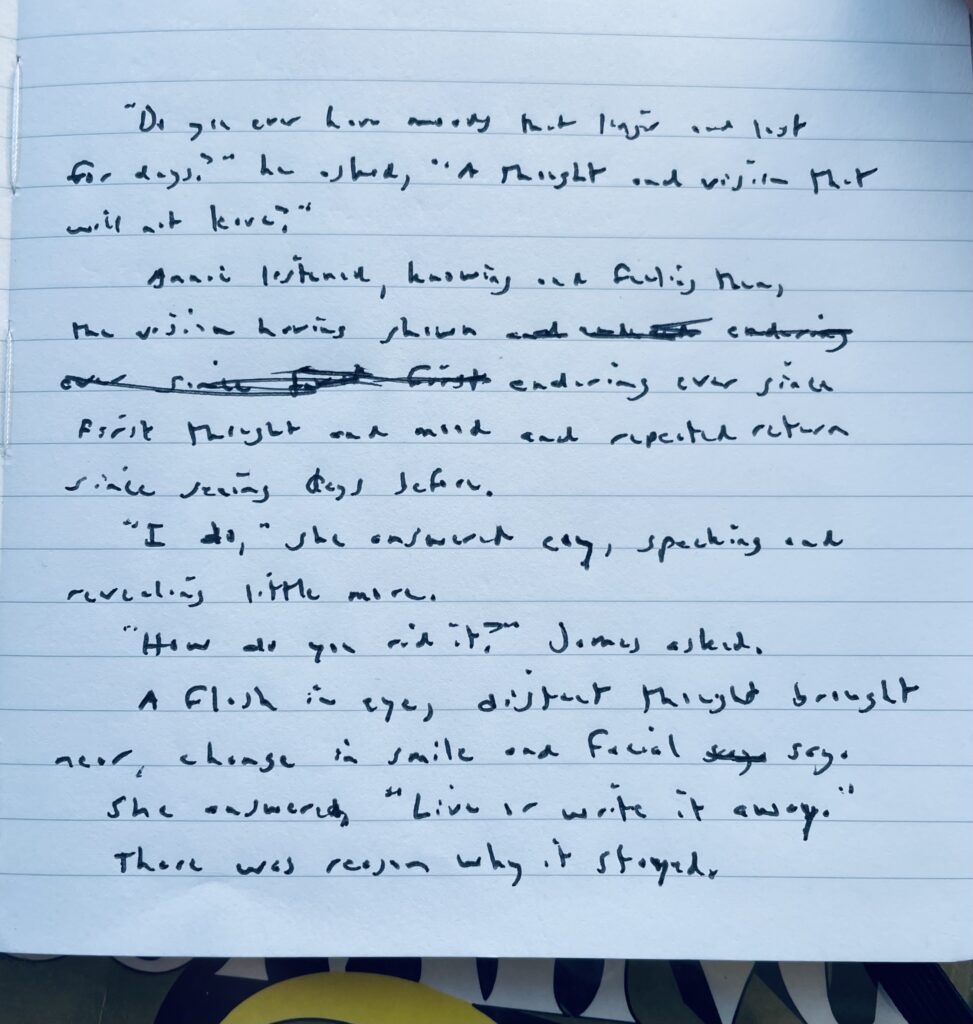 "Do you ever have moods that linger and last
for days?" he asked, "A thought and vision that
will not leave?"
Annie listened, knowing and feeling them,
the vision having shown and enduring
ever since first enduring ever since
first thought and mood and repeated return
since seeing days before.
"I do," she answered coy, speaking and
revealing little more.
"How do you rid it?" James asked.
A flash in eye, distant thought brought
near, change in smile and facial say.
She answered, "Live or write it away."
There was reason why it stayed.